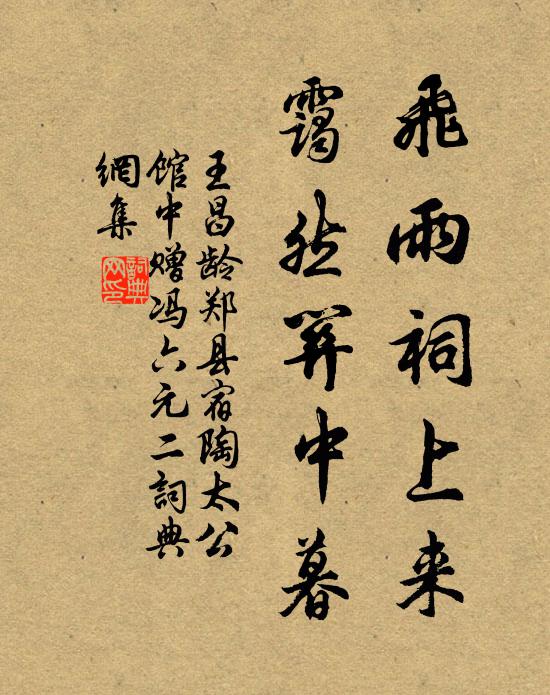 飛雨祠上来
霭然關中暮
王昌龄郑县宿陶太公
馆中赠冯六元二詞典
網集
詞典
网印